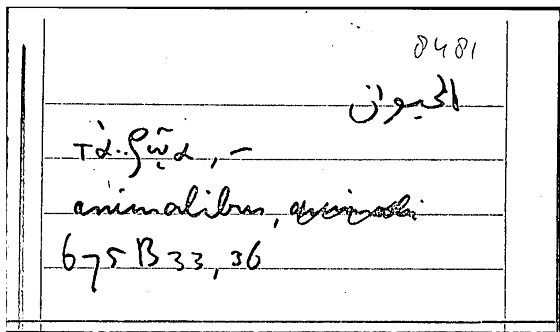 8481
الحيوان
τὰ..ζῷα, –
animalibus,
675 B 33, 36